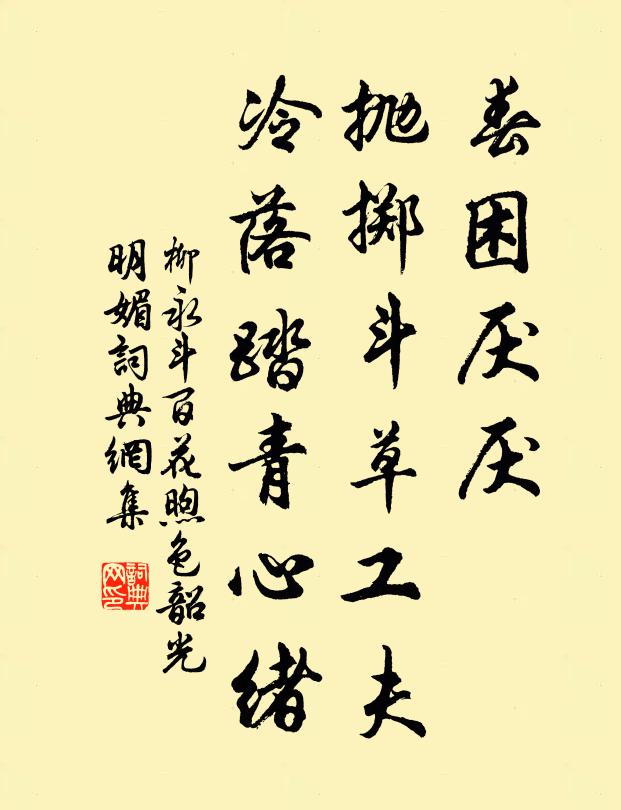 春困厌厌
抛掷斗草工夫
冷落踏青心绪
柳永斗百花煦色韶光
明媚詞典網集
詞典網印